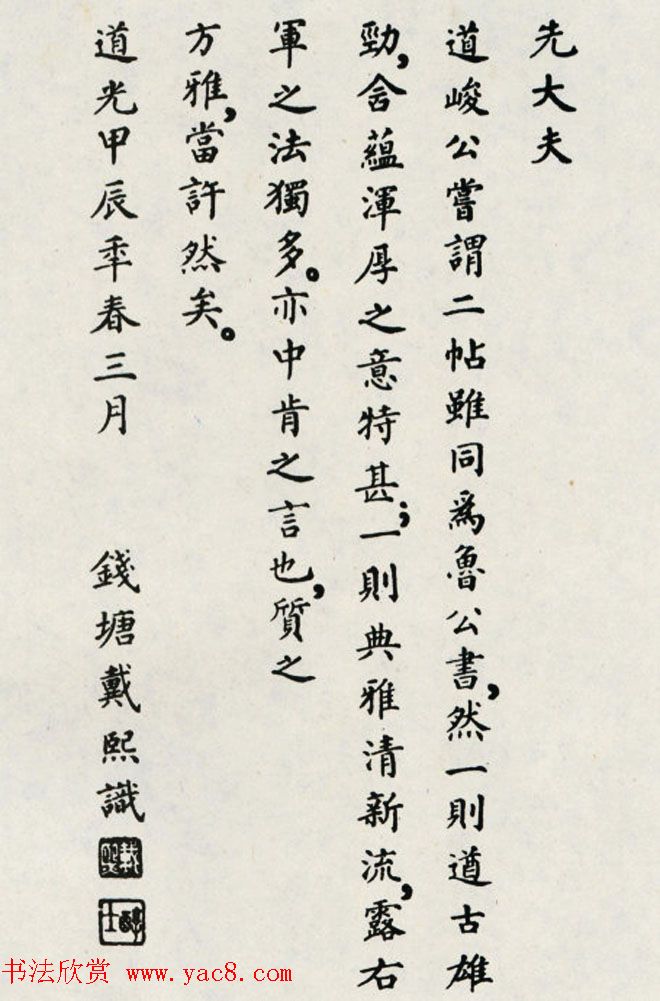 先大夫
道峻公嘗謂二帖雖同爲魯公書，然一則遒古雄
勁，含蘊渾厚之意特甚；一則典雅清新流，露右
軍之法獨多。亦中肯之言也，質之
方雅，當許然矣。
道光甲辰季春三月 錢塘戴熙識
戴熙
醇士
书法欣赏 www.yac8.com